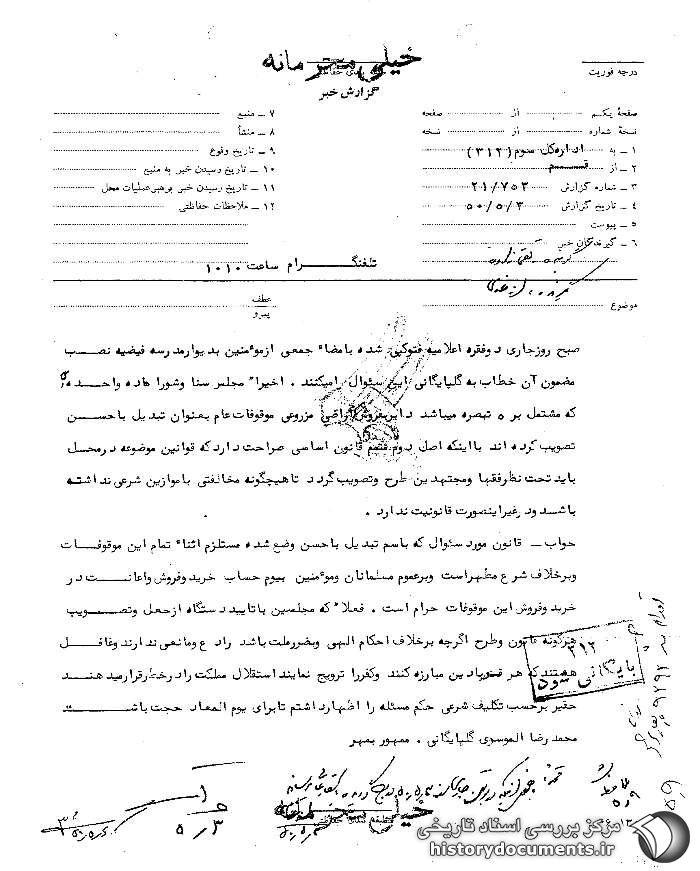 خیلی محرمانه
درجه فوریت
گزارش خبر
صفحهٔ یکم از صفحه
نسخهٔ شماره از نسخه
۱ – به اداره کل سوم (۳۱۲)
۲ – از قم
۳ – شماره گزارش ۲۱/۷۵۲
۴ – تاریخ گزارش ۵۰/۵/۳
۵ – پیوست
۶ – گیرندگان خبر
۷ – منبع
۸ – منشأ
۹ – تاریخ وقوع
۱۰ – تاریخ رسیدن خبر به منبع
۱۱ – تاریخ رسیدن خبر برهبر عملیات محل
۱۲ – ملاحظات حفاظتی
تلفنگرام ساعت ۱۰۱۰
موضوع
عطف
پیرو
صبح روزجاری دوفقره اعلامیه فتوکپی شده بامضاء جمعی ازمؤمنین بدیوارمدرسه فیضیه نصب
مضمون آن خطاب به گلپایگانی این سئوال رامیکنند . اخیرا مجلس سنا وشورا ماده واحده
که مشتمل بر ۵ تبصره میباشد دایربفروش اراضی مزروعی موقوفات عام بعنوان تبدیل باحسن
تصویب کرده اند بااینکه اصل دوم متمم قانون اساسی صراحت دارد که قوانین موضوعه درمجلس
باید تحت نظرفقها ومجتهدین طرح وتصویب گردد تاهیچگونه مخالفتی باموازین شرعی نداشته
باشد ودرغیراینصورت قانونیت ندارد .
جواب – قانون مورد سئوال که باسم تبدیل باحسن وضع شده مستلزم افناء تمام این موقوفات
وبرخلاف شرع مطهراست وبرعموم مسلمانان ومؤمنین بیوم حساب خرید وفروش واعانت در
خرید وفروش این موقوفات حرام است . فعلا که مجلسین باتایید دستگاه ازجعل وتصویب
هرگونه قانون وطرح اگرچه برخلاف احکام الهی وبضررملت باشد رادع ومانعی ندارند وغافل
هستند که هر قدر با دین مبارزه کنند وکفررا ترویج نمایند استقلال مملکت رادرخطرقرارمیدهند
حقیر برحسب تکلیف شرعی حکم مسئله را اظهارداشتم تابرای یوم المعاد حجت باشد
محمد رضا الموسوی گلپایگانی . ممهور بمهر
۳۱۲
بایگانی شود
خیلی محرمانه
۵/۳
مرکز بررسی اسناد تاریخی
historydocuments.ir